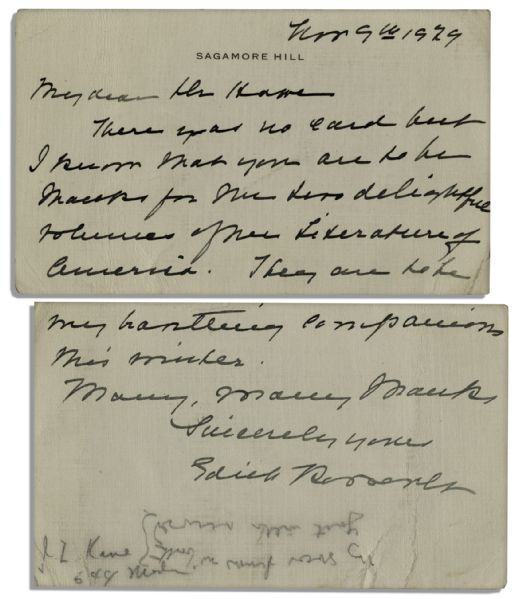 Nov 9th 1929
SAGAMORE HILL
My dear Mr
There was no card but
I know that you are to be
thanks for the two delightful
volumes of the Literature of
America. They are to be
my companions
this winter.
Many, many thanks
Sincerely yours
Edith Roosevelt